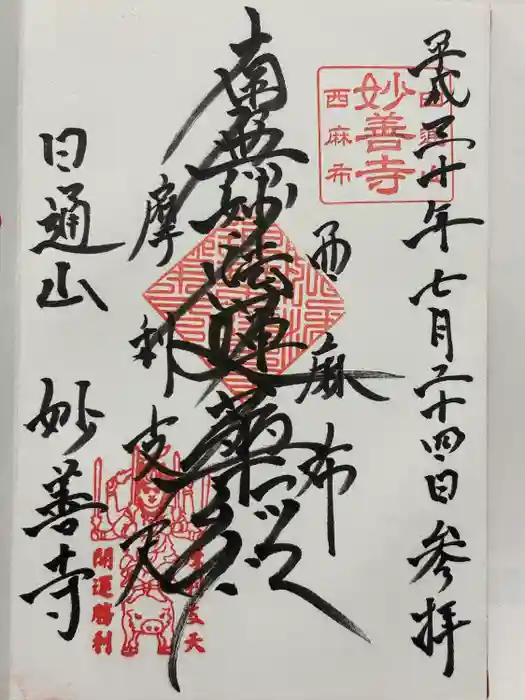 平成三十年七月二十四日 参拝
妙善寺
西麻布
西麻布
南無妙法蓮華経
摩利支天
開運勝利
日通山 妙善寺